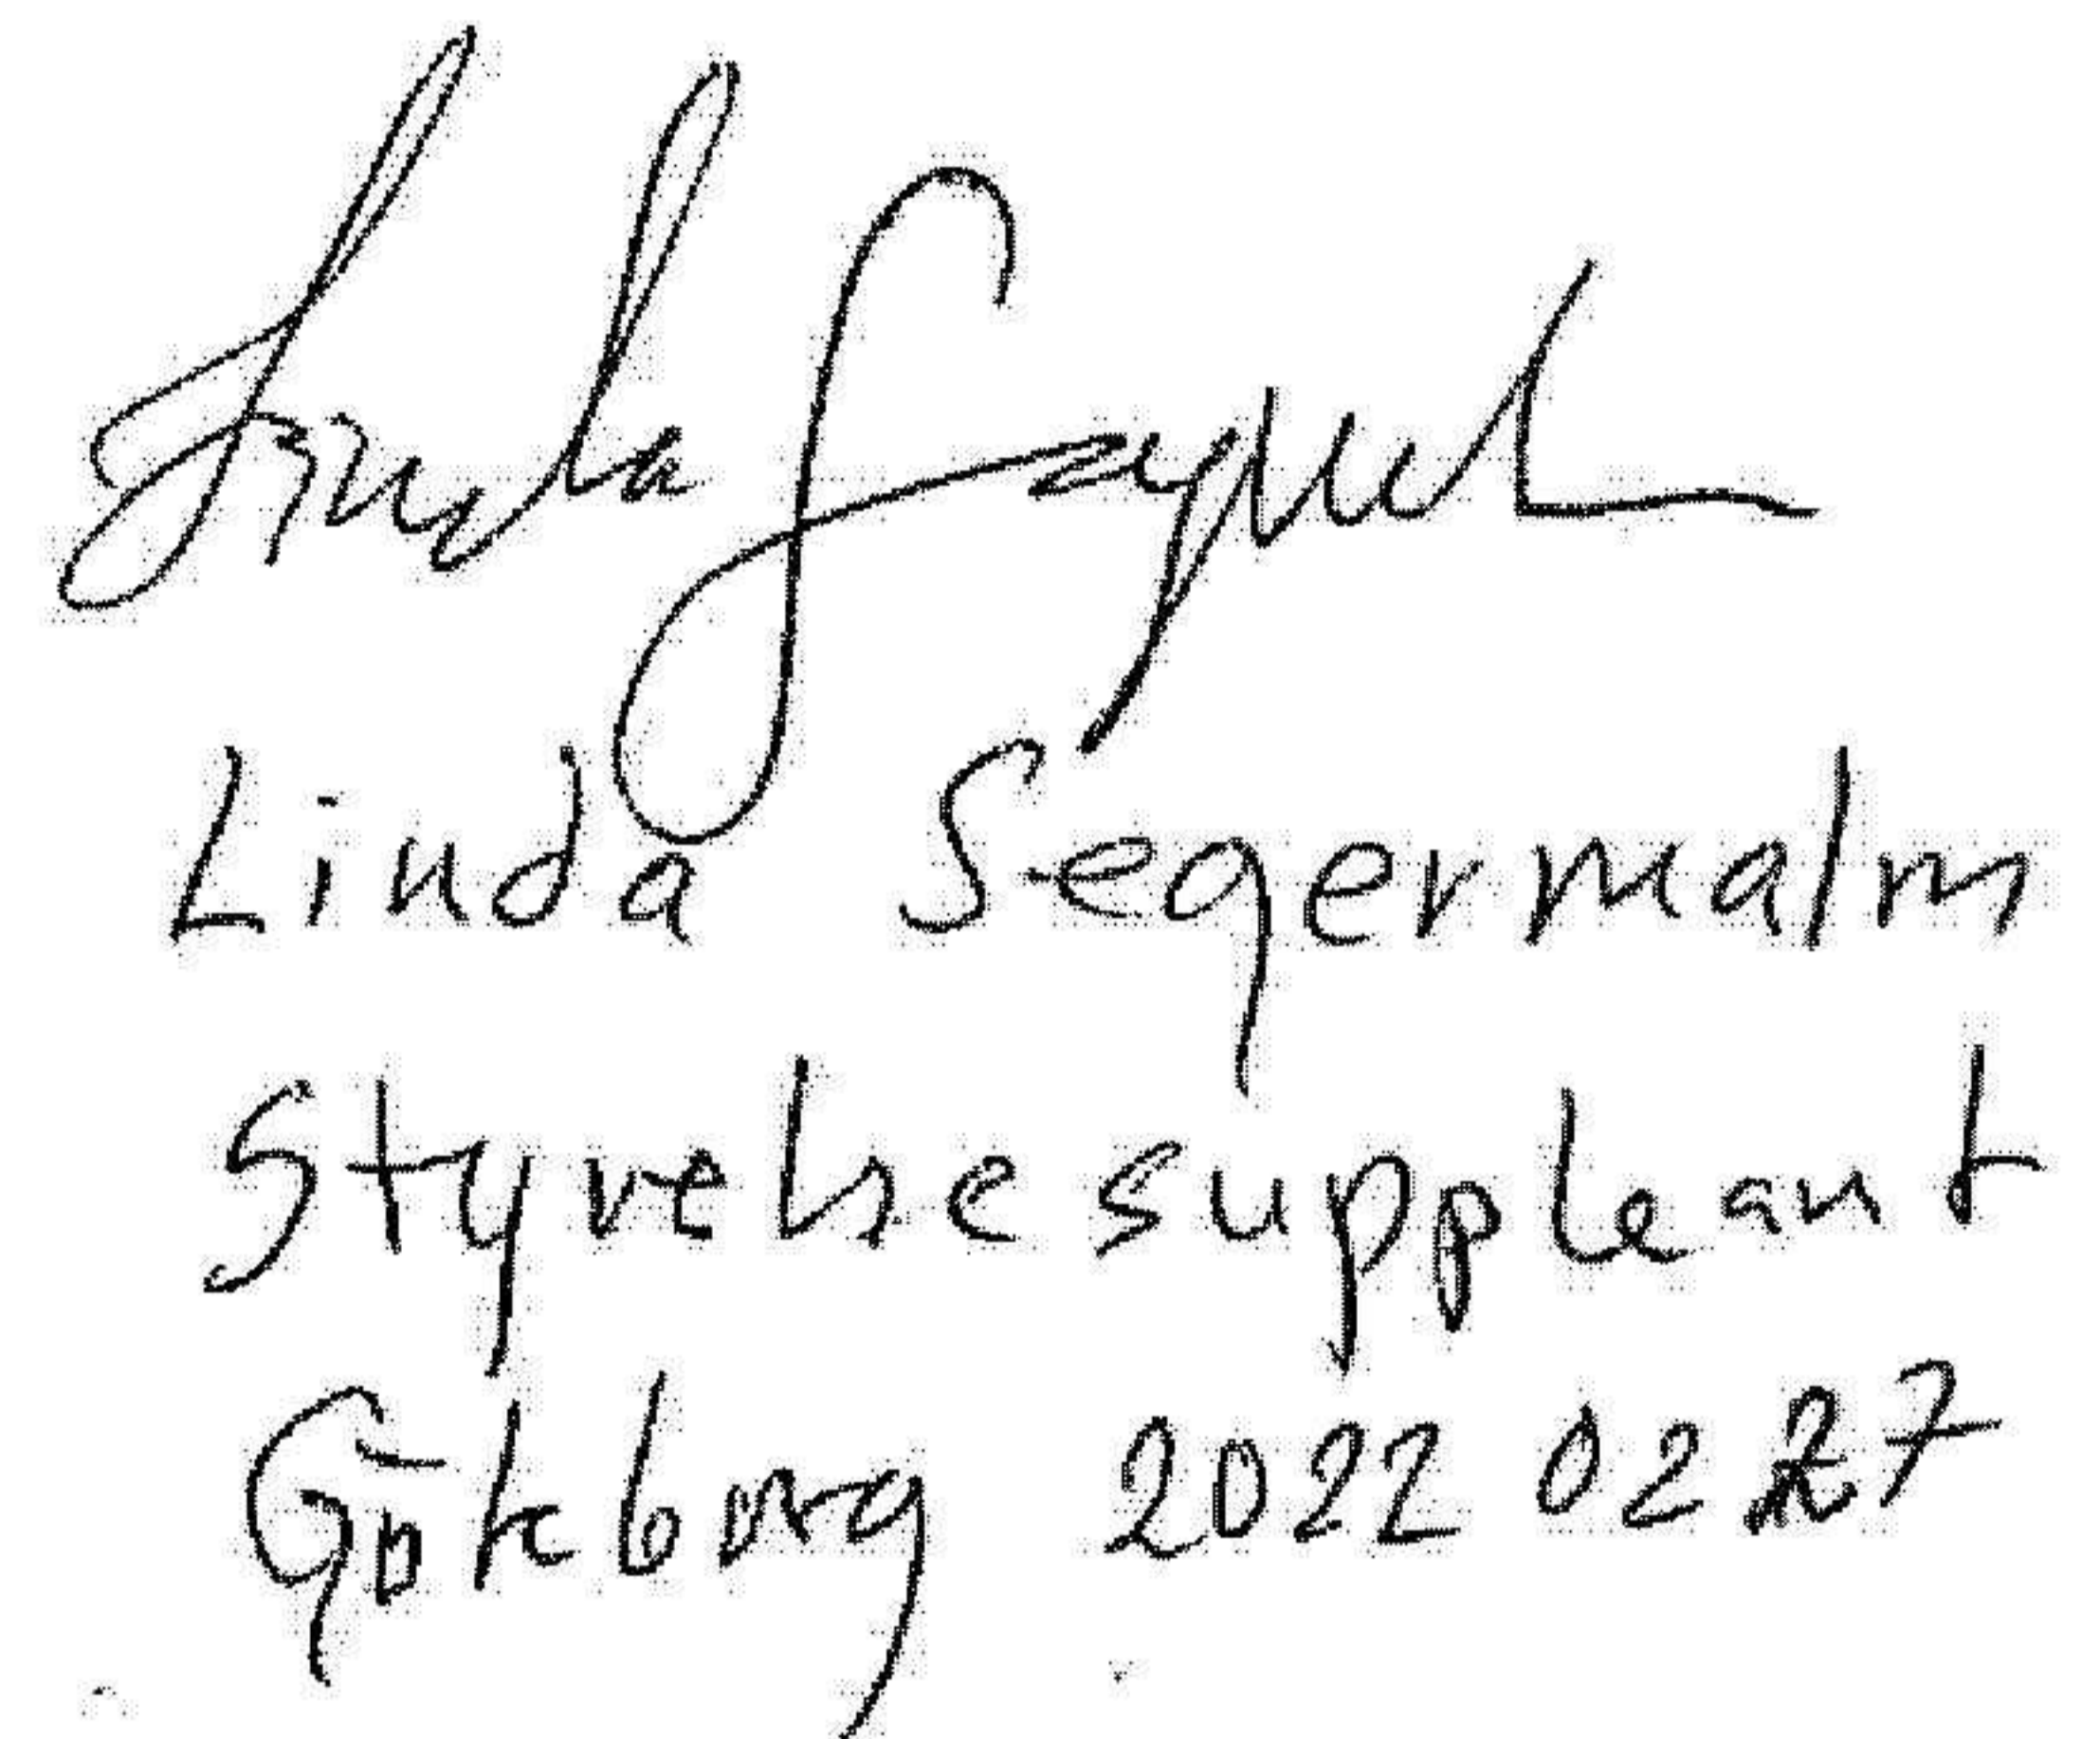 Linda Segermalm
Linda Segermalm
Styrelsesuppleant
Göteborg 2022 02 27